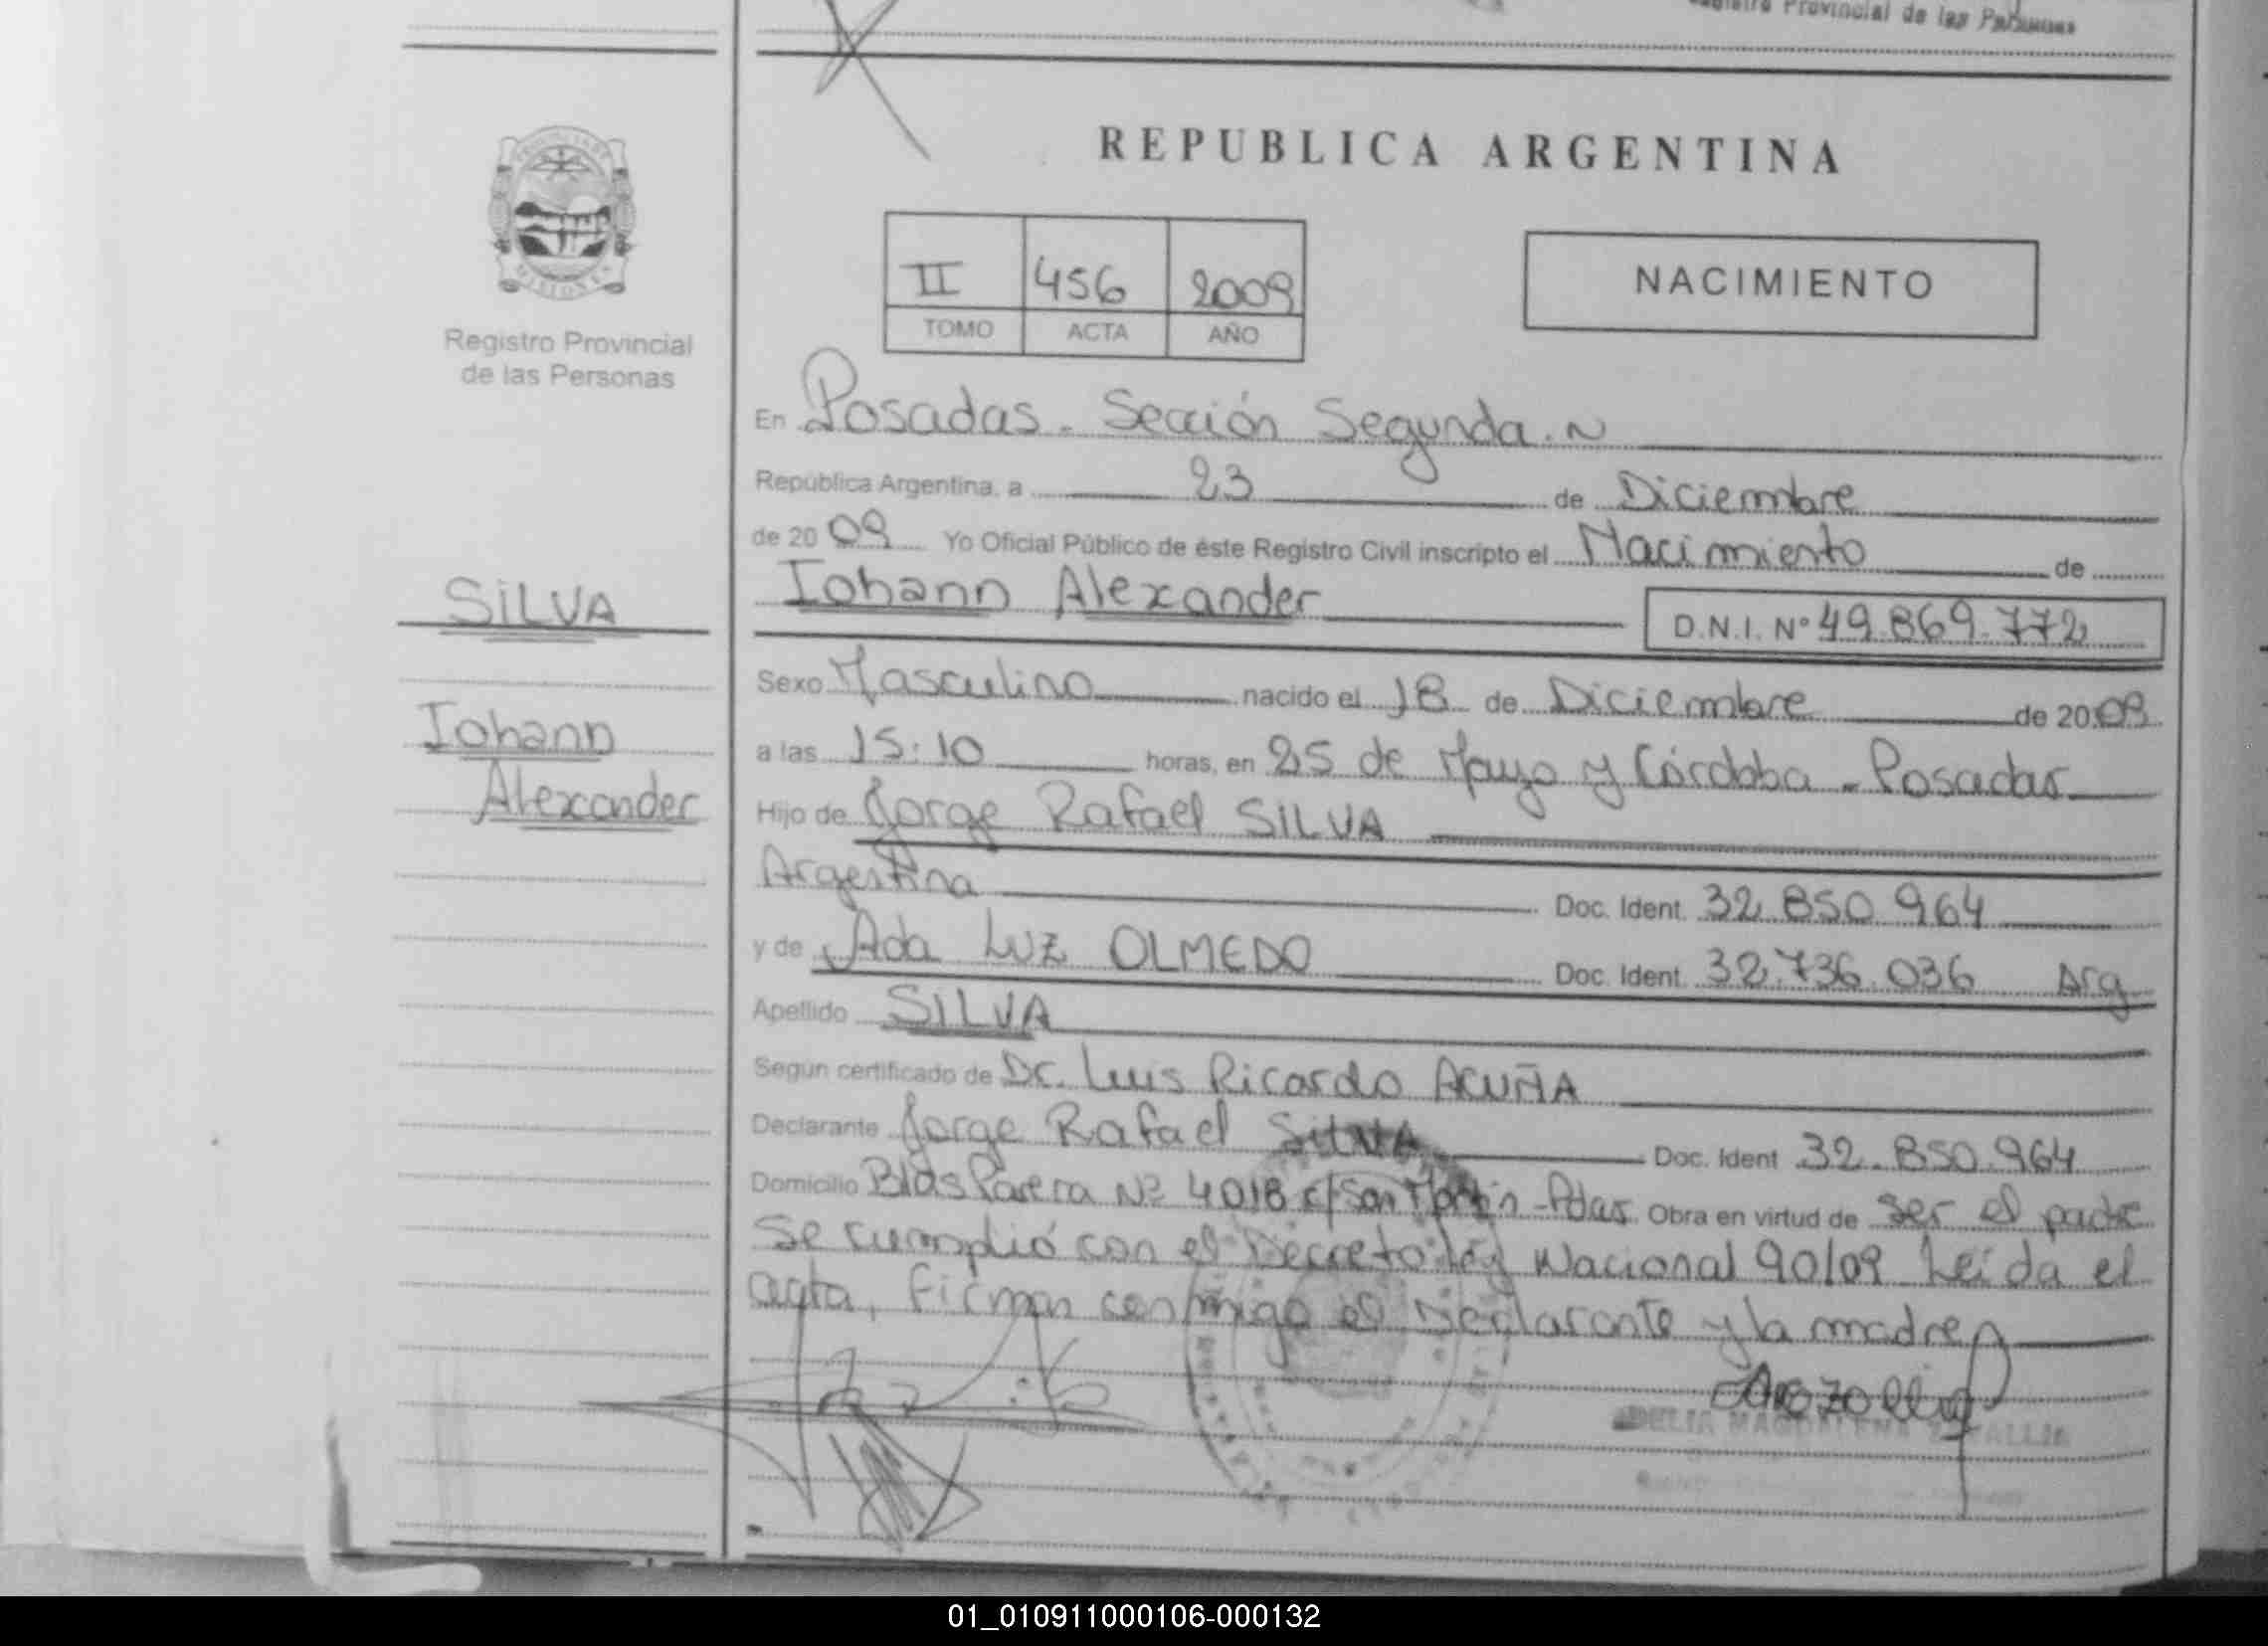 Registro Provincial de las Personas
REPUBLICA ARGENTINA
II 456 2009
TOMO ACTA AÑO
NACIMIENTO
Registro Provincial
de las Personas
SILVA
Iohann
Alexander
En Posadas - Sección Segunda.~
República Argentina, a 23 de Diciembre
de 2009 Yo Oficial Público de éste Registro Civil inscripto el Nacimiento de
Iohann Alexander
D.N.I. Nº 49.869.772
Sexo Masculino nacido el 18 de Diciembre de 2009
a las 15:10 horas, en 25 de Mayo y Córdoba - Posadas
Hijo de Jorge Rafael SILVA
Argentina Doc. Ident. 32.850.964
y de Ada Luz OLMEDO Doc. Ident. 32.736.036 Arg
Apellido SILVA
Según certificado de Dr. Luis Ricardo ACUÑA
Declarante Jorge Rafael SILVA Doc. Ident 32.850.964
Domicilio Blas Parera Nº 4018 c/San Martín - Pdas Obra en virtud de ser el padre
Se cumplió con el Decreto Ley Nacional 90/09 Leída el
acta, firman conmigo el Declarante y la madre
01_010911000106-000132